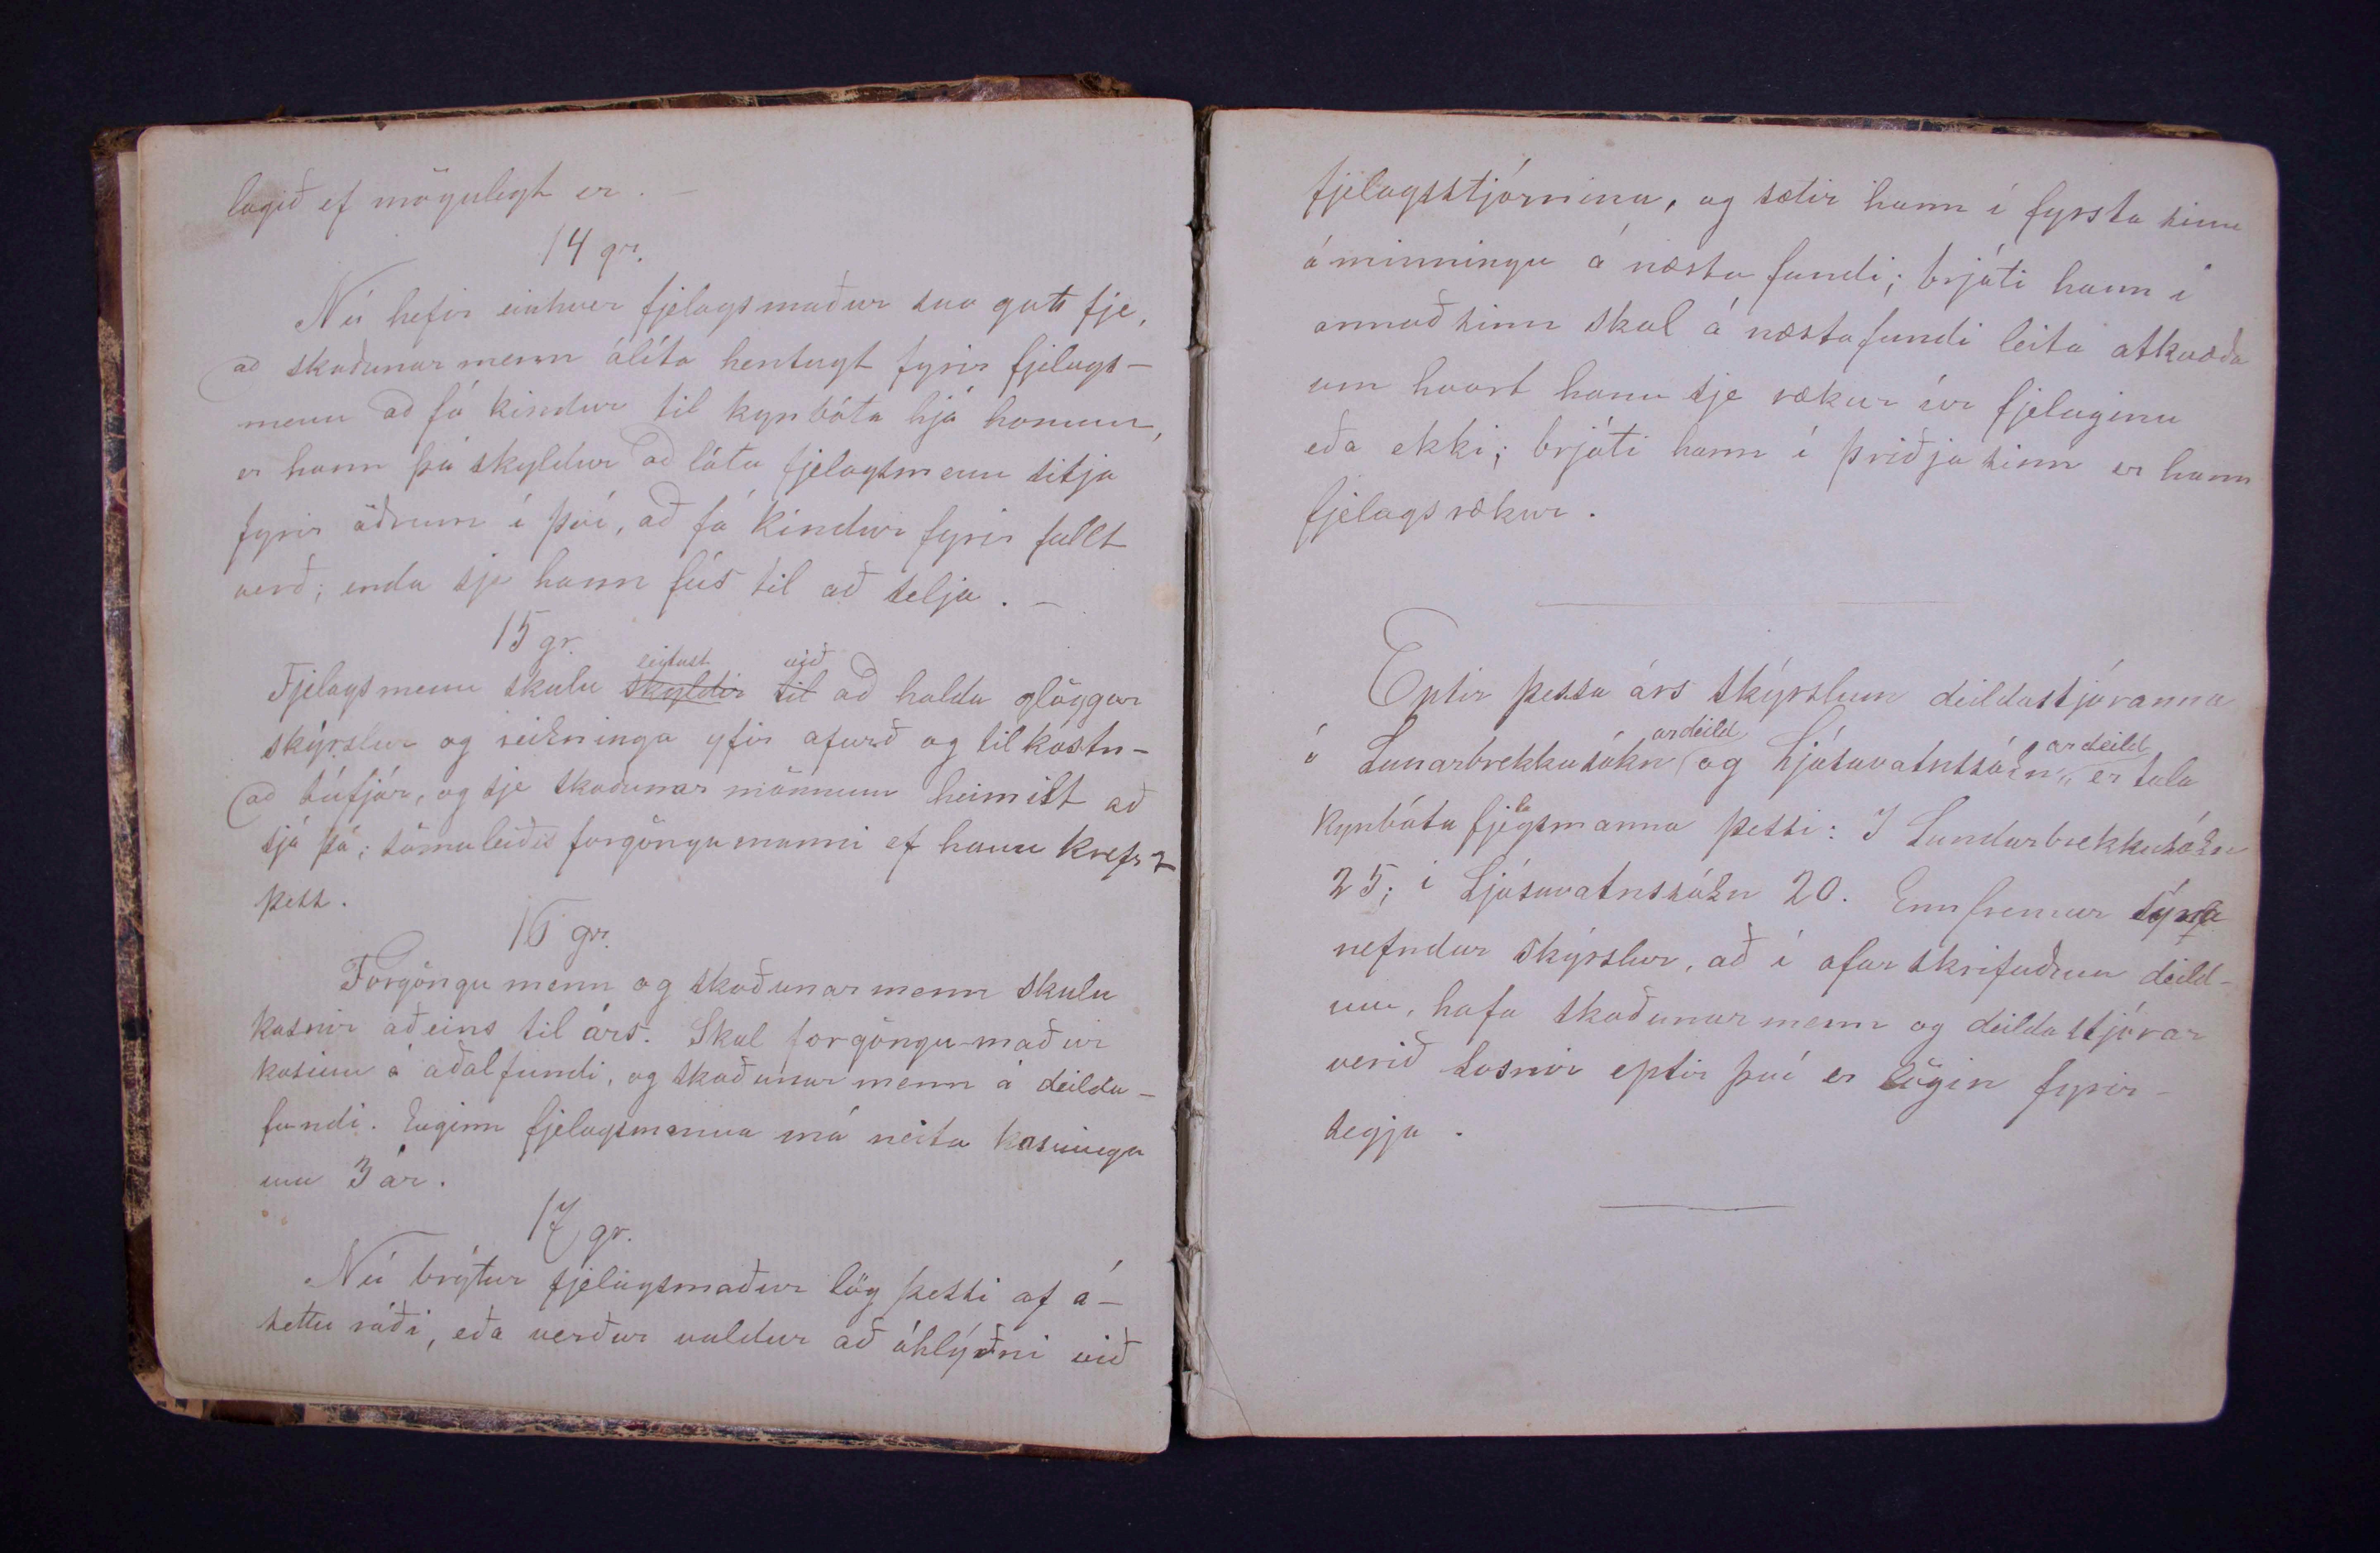 lagið ef mögulegt er. –
14 gr.
Nú hefir einhver fjelagsmaður svo gott fje,
að skoðunarmenn álíta hentugt fyrir fjelags-
menn að fá kindur til kynbóta hjá honum,
er hann þá skyldur að láta fjelagsmenn sitja
fyrir öðrum í því, að fá kindur fyrir fullt
verð; enda sje hann fús til að selja. –
15 gr.
eigtast við
Fjelagsmenn skulu skyldir til að halda glöggar
skýrslur og reikninga yfir afurð og tilkostn-
að búfjár, og sje skoðunar mönnum heimilt að
sjá þá; sömuleiðis forgöngumanni ef hann krefst
þess.
16 gr.
Forgöngumenn og skoðunarmenn skulu
kosnir aðeins til árs. Skal forgöngu-maður
kosinn á aðalfundi, og skoðunarmenn á deilda-
fundi. Enginn fjelagsmanna má neita kosningu
um 3 ár.
17 gr.
Nú brýtur fjelagsmaður lög þessi af á-
settu ráði, eða verður valdur að óhlýðni við
fjelagsstjórnina, og sætir hann í fyrsta sinn
áminningu á næsta fundi; brjóti hann í
annað sinn skal á næsta fundi leita atkvæða
um hvort hann sje rækur úr fjelaginu
eða ekki; brjóti hann í þriðja sinn er hann
fjelagsrækur.
Eptir þessa árs skýrslum deildastjóranna
ardeild ardeild
í Lunarbrekkusókn og Ljósavatnssókn„ er tala
kynbóta fjelagsmanna þessi: Í Lundarbrekkusókn
25; í Ljósavatnssókn 20. Ennfremur sýna
nefndar skýrslur, að í ofar skrifuðum deild-
um, hafa skoðunarmenn og deildastjórar
verið kosnir eptir því er lögin fyrir-
segja.